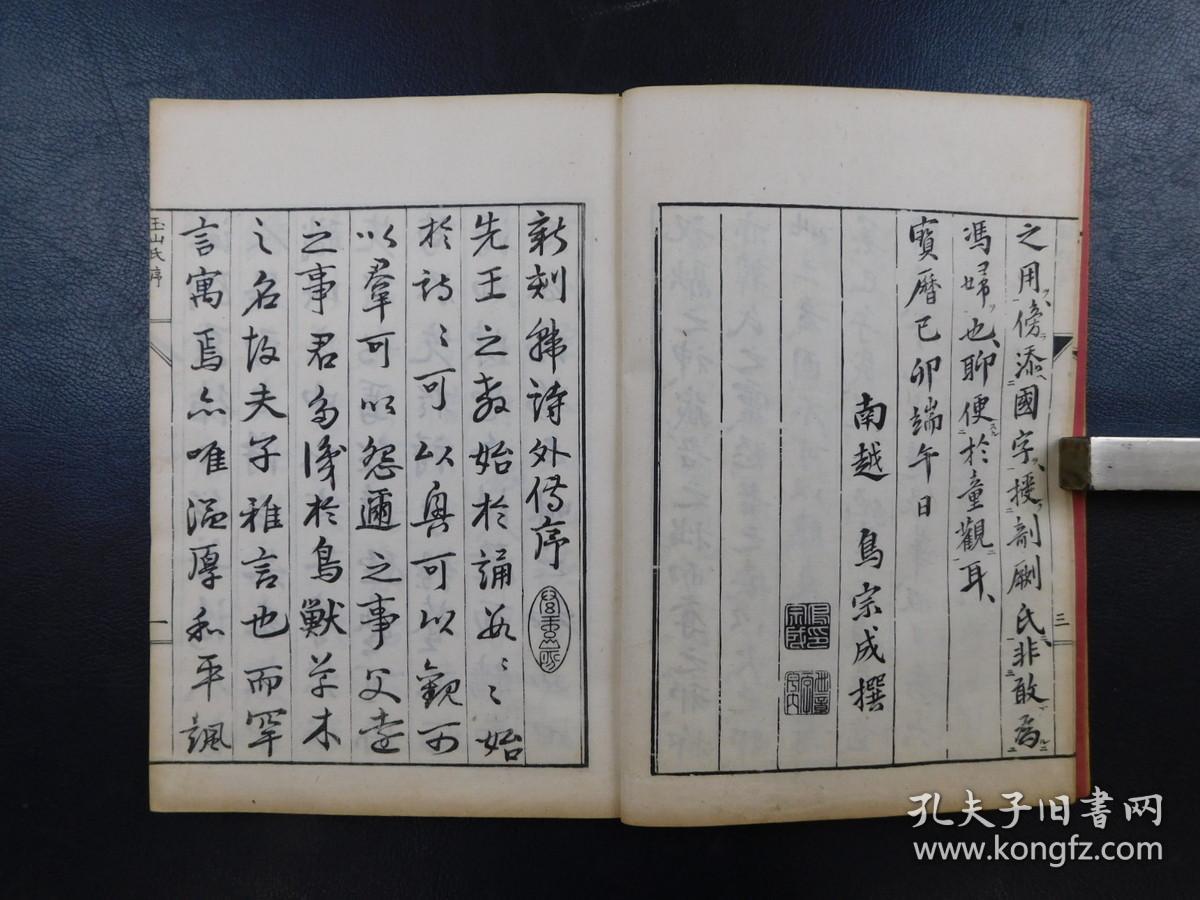 之用傍添國字、授剞劂氏、非敢為
馮婦也、聊便於童觀耳、
寶曆己卯端午日
南越 鳥宗成撰
三
新刻韓詩外傳序
先王之教始於誦數〻〻始
於詩〻可以興可以觀可
以羣可以怨邇之事父遠
之事君多識於鳥獸草木
之名故夫子雅言也而罕
言寓焉亦唯溫厚和平諷
玉山氏序
一
孔夫子旧书网
www.kongfz.com